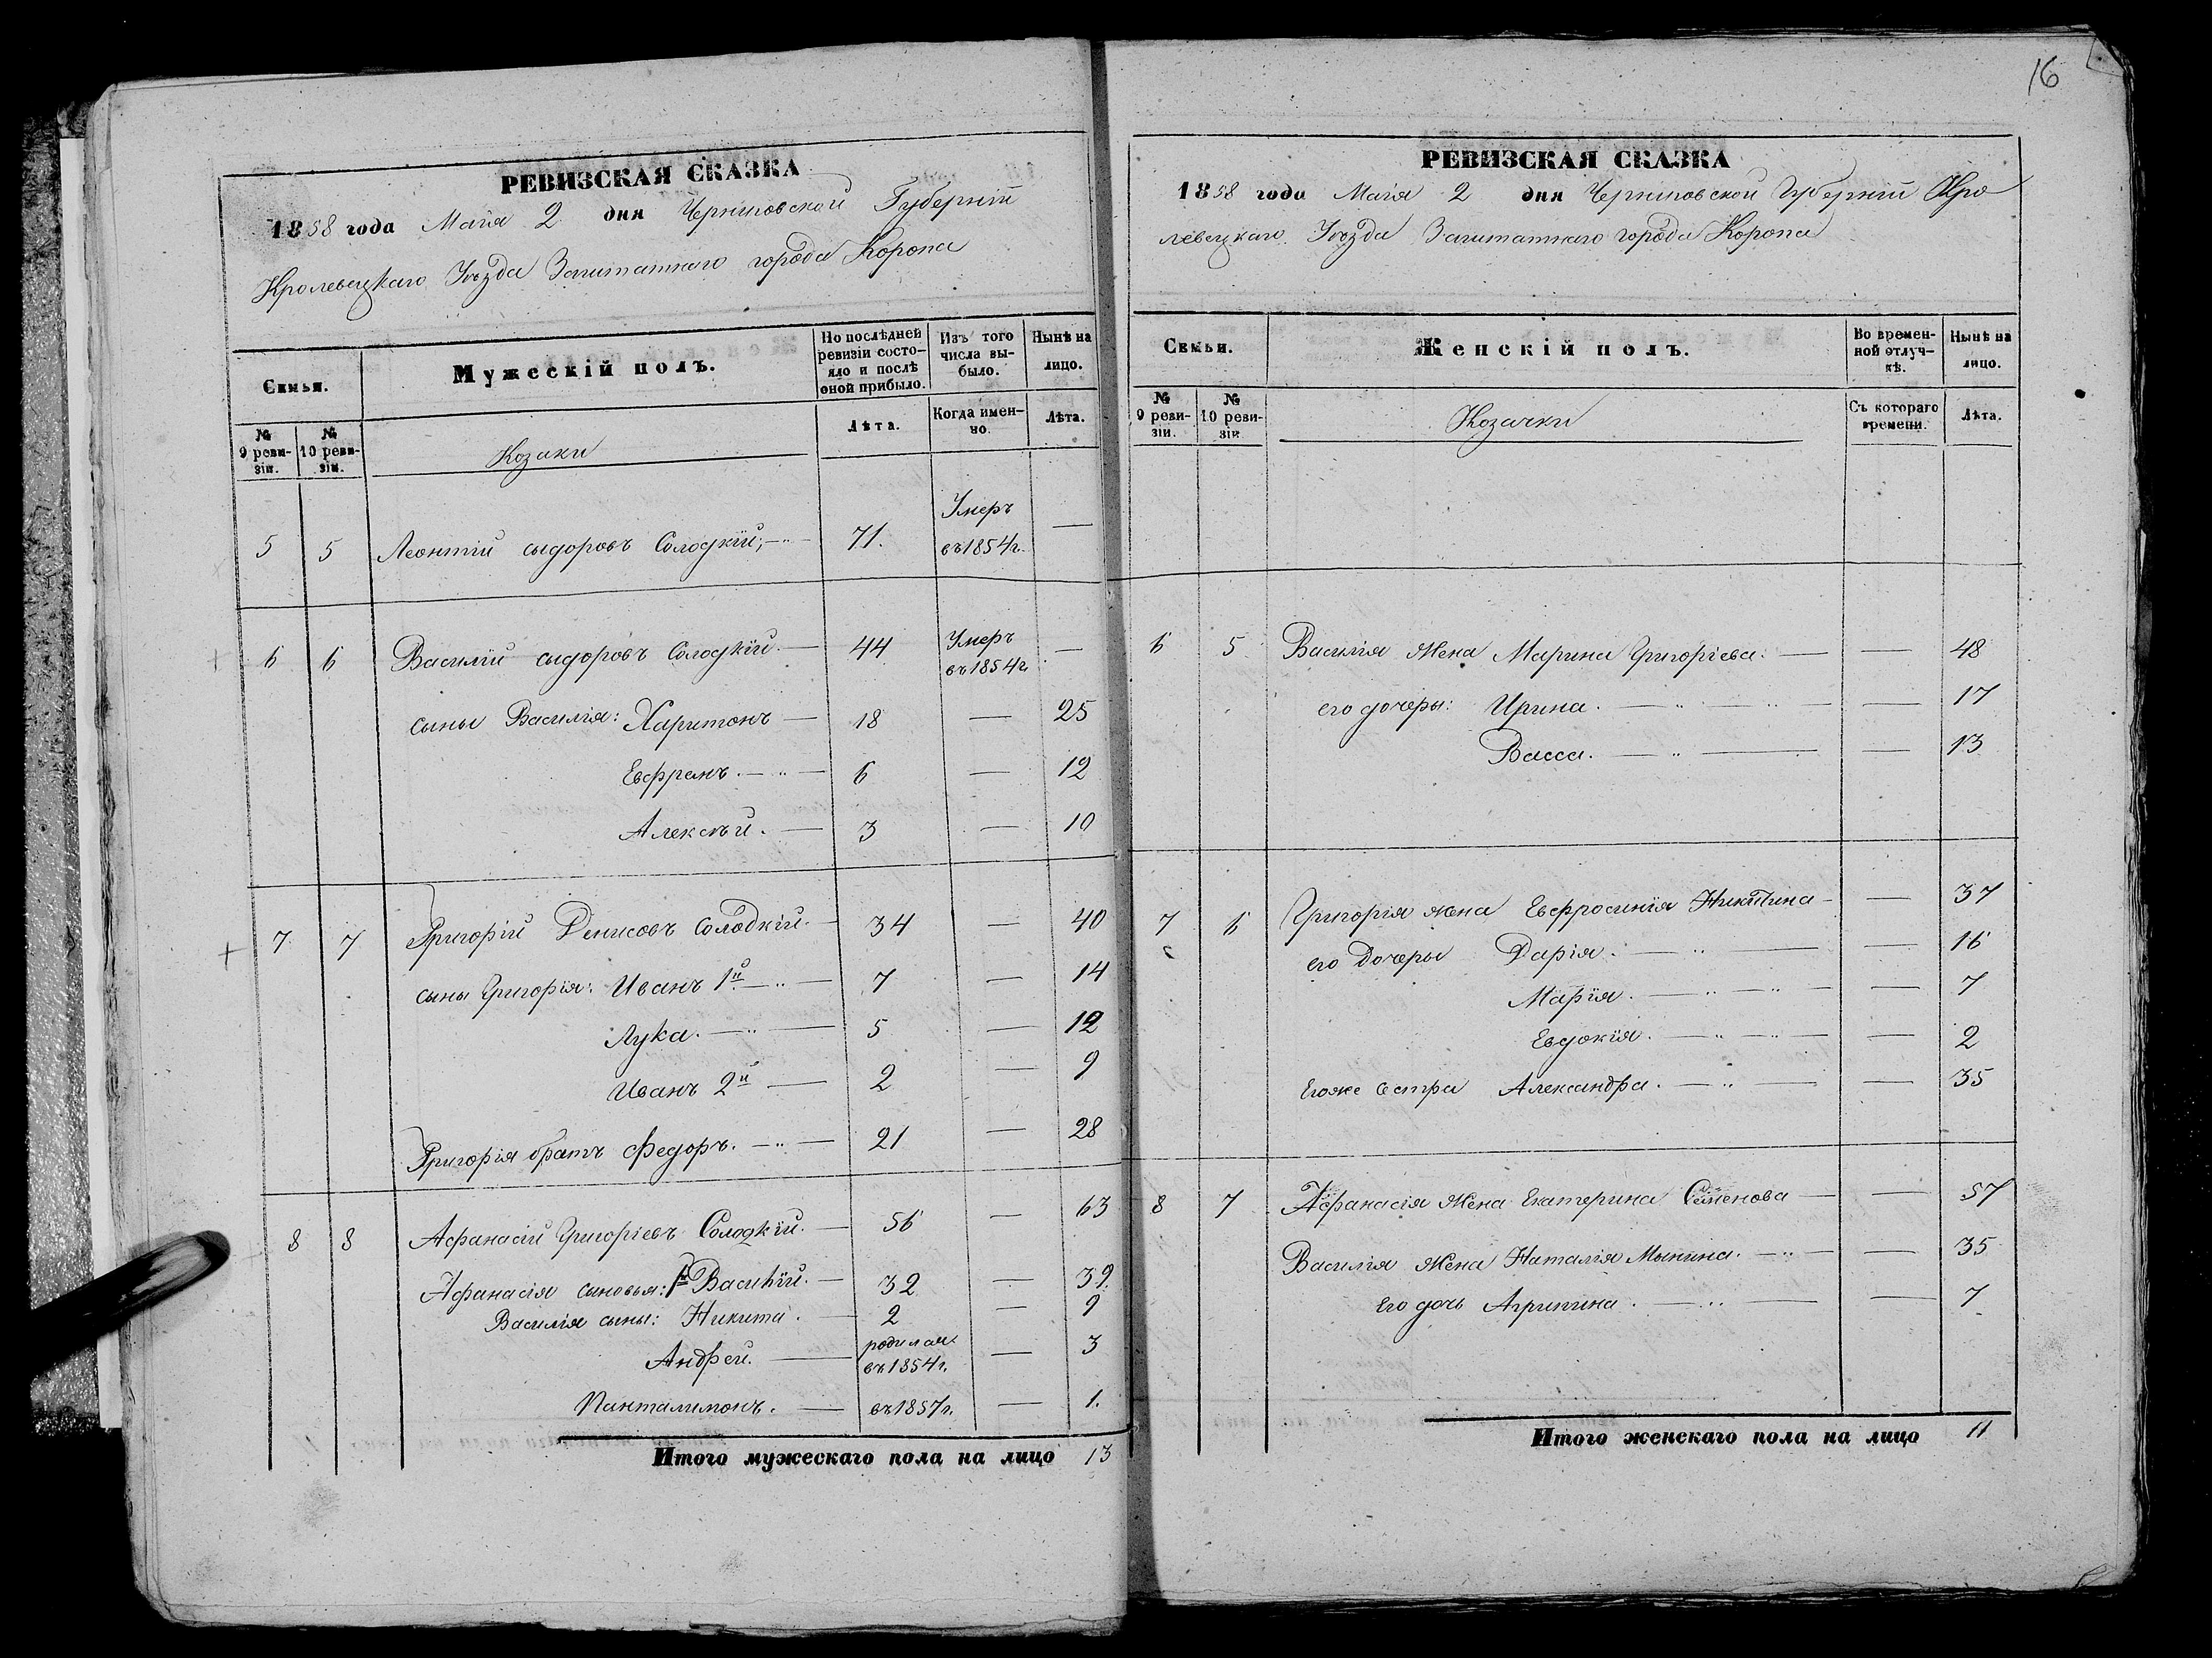 16
РЕВИЗСКАЯ СКАЗКА
1858 года Маія 2 дня Черниговской Губерніи
Кролевецкаго Уѣзда Заштатнаго города Коропа
Семьи.
Мужескій полъ.
По послѣдней ревизіи состояло и послѣ оной прибыло.
Изъ того числа выбыло.
Нынѣ на лицо.
№ 9 ревизіи.
№ 10 ревизіи.
Козаки
Лѣта.
Когда именно.
Лѣта.
5 5 Леонтій сыдоровъ Солодкій; — 71. Умеръ въ 1854 г. —
6 6 Василій сыдоровъ Солодкій. — 44 Умеръ въ 1854 г. —
сыны Василія: Харитонъ — 18 — 25
Евфремъ. — 6 — 12
Алексѣй. — 3 — 10
7 7 Григорій Денисовъ Солодкій. — 34 — 40
сыны Григорія: Иванъ 1й — 7 — 14
Лука. — 5 — 12
Иванъ 2й — 2 — 9
Григорія братъ Федоръ. — 21 — 28
8 8 Афанасій Григоріевъ Солодкій. — 56 — 63
Афанасія сыновья: 1й Василій. — 32 — 39.
Василія сыны: Никита. — 2 — 9
Андрей. — родился въ 1854 г. — 3
Панталимонъ. — въ 1857 г. — 1.
Итого мужескаго пола на лицо 13
РЕВИЗСКАЯ СКАЗКА
1858 года Маія 2 дня Черниговской Губерніи Кро
левецкаго Уѣзда Заштатнаго города Коропа
Семьи.
Женскій полъ.
Во временной отлучкѣ.
Нынѣ на лицо.
№ 9 ревизіи.
№ 10 ревизіи.
Козачки
Съ котораго времени.
Лѣта.
6 5 Василія жена Марина Григоріева. — — 48
его дочеры: Ирина. — — 17
Васса. — — 13
7 6 Григорія жена Евфросинія Никитина — — 37
его Дочеры Дарія. — — 16
Марія. — — 7
Евдокія. — — 2
Егоже Сестра Александра. — — 35
8 7 Афанасія Жена Екатерина Семенова — — 57
Василія Жена Наталія Мынина. — — 35
Его дочь Агрипина. — — 7
Итого женскаго пола на лицо 11